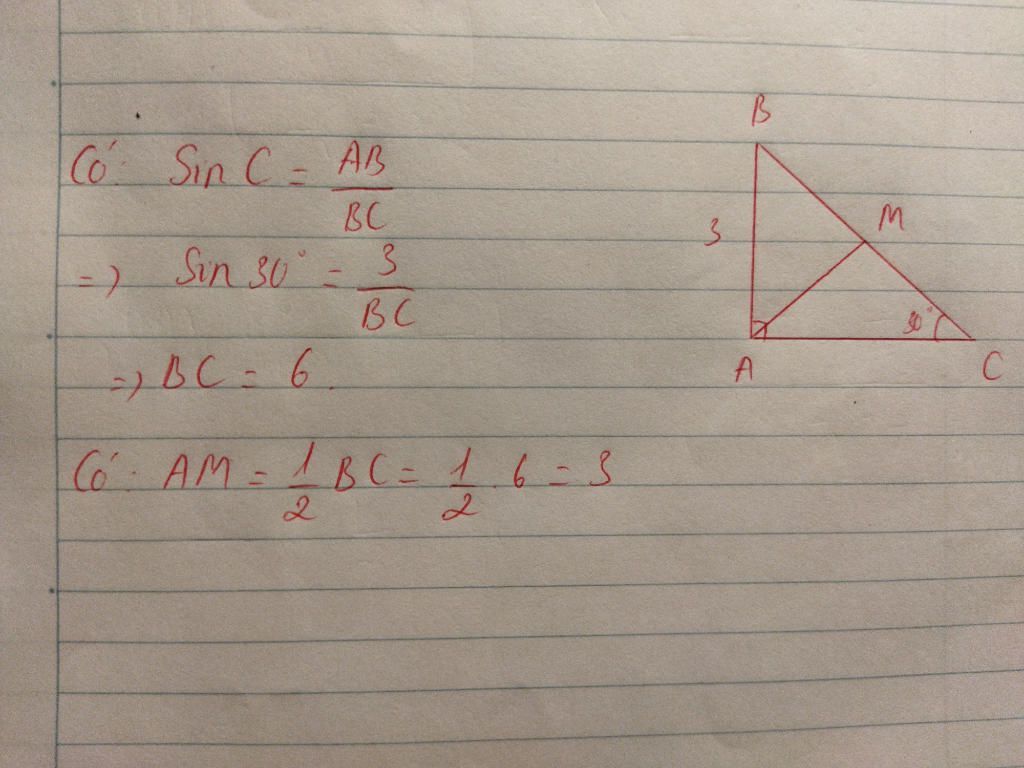 Có: Sin C = AB/BC
=> Sin 30° = 3/BC
=> BC = 6.
Có: AM = 1/2 BC = 1/2 . 6 = 3
B
M
3
30°
A
C